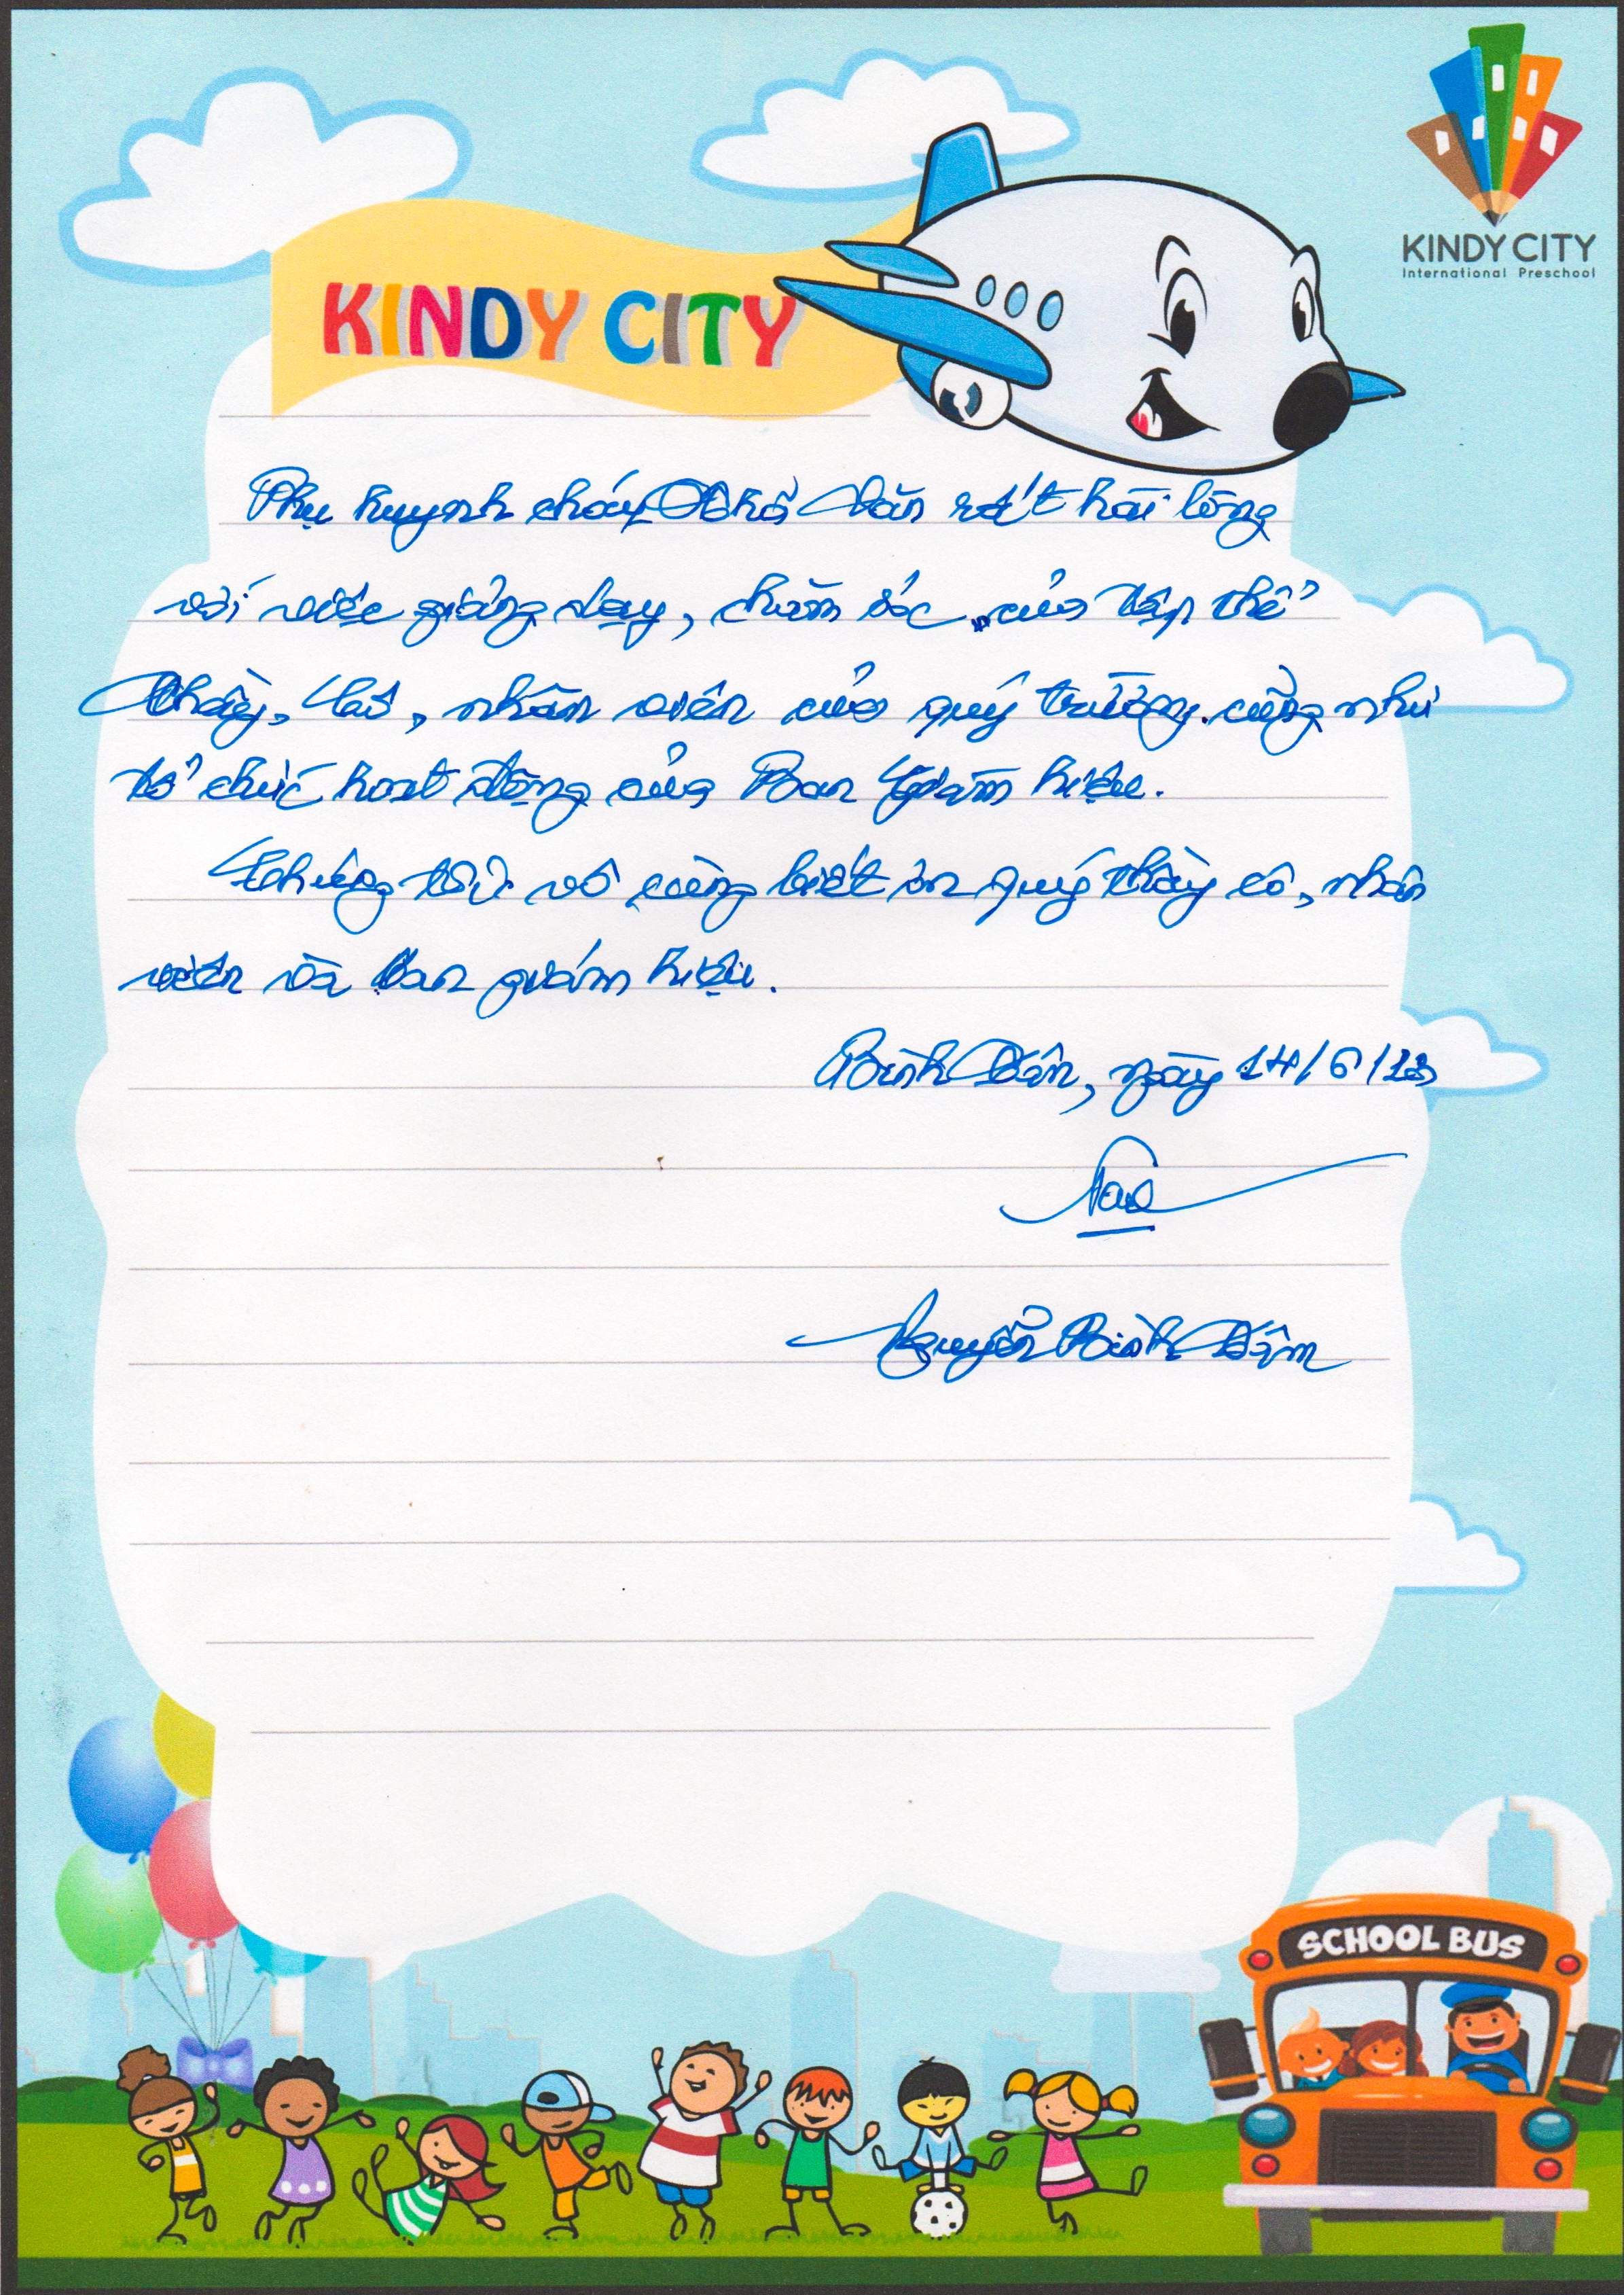 KINDY CITY
International Preschool
KINDY CITY
Phụ huynh cháu Nhã Văn rất hài lòng
với việc giảng dạy, chăm sóc của tập thể
thầy, cô, nhân viên của quý trường cũng như
tổ chức hoạt động của Ban Giám hiệu.
Chúng tôi vô cùng biết ơn quý thầy cô, nhân
viên và ban giám hiệu.
Bình Tân, ngày 14/6/23
Nguyễn Bình Tâm
SCHOOL BUS